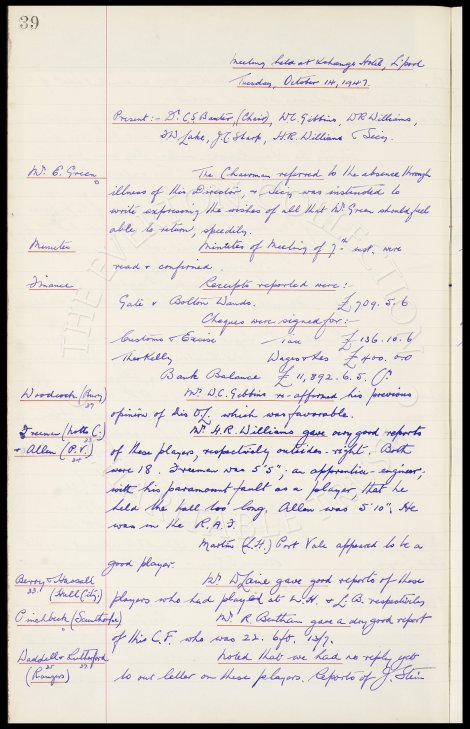 39
Meeting held at Exchange Hotel, L'pool
Tuesday, October 14, 1947.
Present :- Dr. C.S. Baxter, (Chair), W.C. Gibbins, W.R. Williams,
J.C. Sharp, H.R. Williams & Secy.
Mr. E. Green
The Chairman referred to the absence through
illness of this Director, & Secy was instructed to
write expressing the wishes of all that Mr Green should feel
able to return, speedily.
Minutes
Minutes of Meeting of 7th inst. were
read & confirmed.
Finance
Receipts reported were :-
Gate v Bolton Wands. £ 709. 5. 6
Cheques were signed for :-
Customs & Excise Tax £ 136. 10. 6
Theo Kelly Wages & Exs £ 400. 0. 0
Bank Balance £ 11,892. 6. 5.
Woodcock (Bury)
Mr. W.C. Gibbins re-affirmed his previous
opinion of this O/L which was favourable.
Freeman (Notts C.)
Mr H.R. Williams gave very good reports
& Allen (P.V.)
of these players, respectively outsides-right. Both
were 18. Freeman was 5'5"; an apprentice-engineer;
with his paramount fault as a player, that he
held the ball too long. Allen was 5'10". He
was in the R.A.F.
Martin (L.H.) Port Vale appeared to be a
good player.
Berry & Hassall
(Hull City)
Mr. gave good reports of these
players who had played at W.H. & L.B. respectively
Pinchbeck (Scunthorpe)
Mr. R. Bentham gave a very good report
of this C.F. who was 22. 6ft. 13/7.
Waddell & Rutherford
(Rangers)
Noted that we had no reply yet
to our letter on these players. Reports of J. Stein